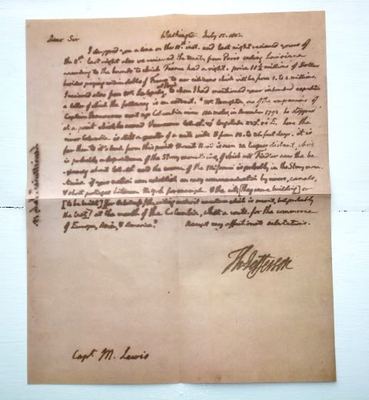 Washington July 15. 1803.
Dear Sir
I dropped you a line on the 11th. inst. and last night recieved yours of
the 8th. last night also we recieved the treaty from Paris ceding Louisiana
according to the bounds to which France had a right. price 11¼ millions of Dollars
besides paying certain debts of France to our citizens which will be from 1. to 4. millions.
I recieved also from Mr La Cepede, to whom I had mentioned your intended expedition
a letter of which the following is an extract. 'Mr Broughton, one of the companions of
Captain Vancouver went up Columbia river 100. miles, in December 1792. he stopped
at a point which he named Vancouver lat. longitude here the
river Columbia is still a quarter of a mile wide & from 12. to 36. feet deep. it is
far then to it's head. from this point Mount Hood is seen 20. leagues distant, which
is probably a dependance of the Stony mountains, of which Mr Fiedler saw the be-
ginning about lat. and the source of the Missouri is probably in the Stony moun-
tains. if your nation can establish an easy communication by rivers, canals,
& short portages between N. York for example & the city [they were building] or
[to be built] [for the badness of the writing makes it uncertain which is meant, but probably
the last] at the mouth of the Columbia, what a route for the commerce
of Europe, Asia, & America.' Accept my affectionate salutations.
Th: Jefferson
Capt. M. Lewis